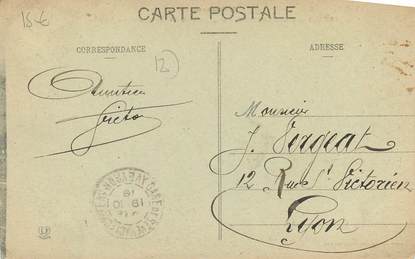 15€
CARTE POSTALE
CORRESPONDANCE
12
ADRESSE
Amitiés
Monsieur
J. Vergeat
12 Rue St Victorien
Lyon